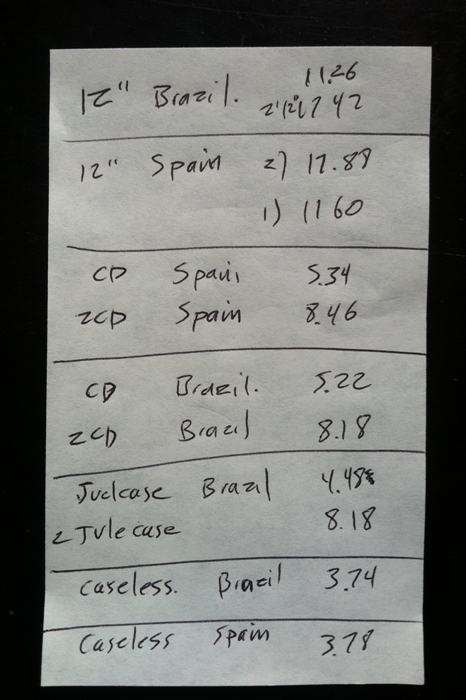 12" Brazil. 11.26
17 42
12" Spain 2) 17.89
1) 11 60
CD Spain 5.34
2CD Spain 8.46
CD Brazil. 5.22
2CD Brazil 8.18
Juelcase Brazil 4.48
2 Jule case 8.18
Caseless. Brazil 3.74
Caseless Spain 3.78